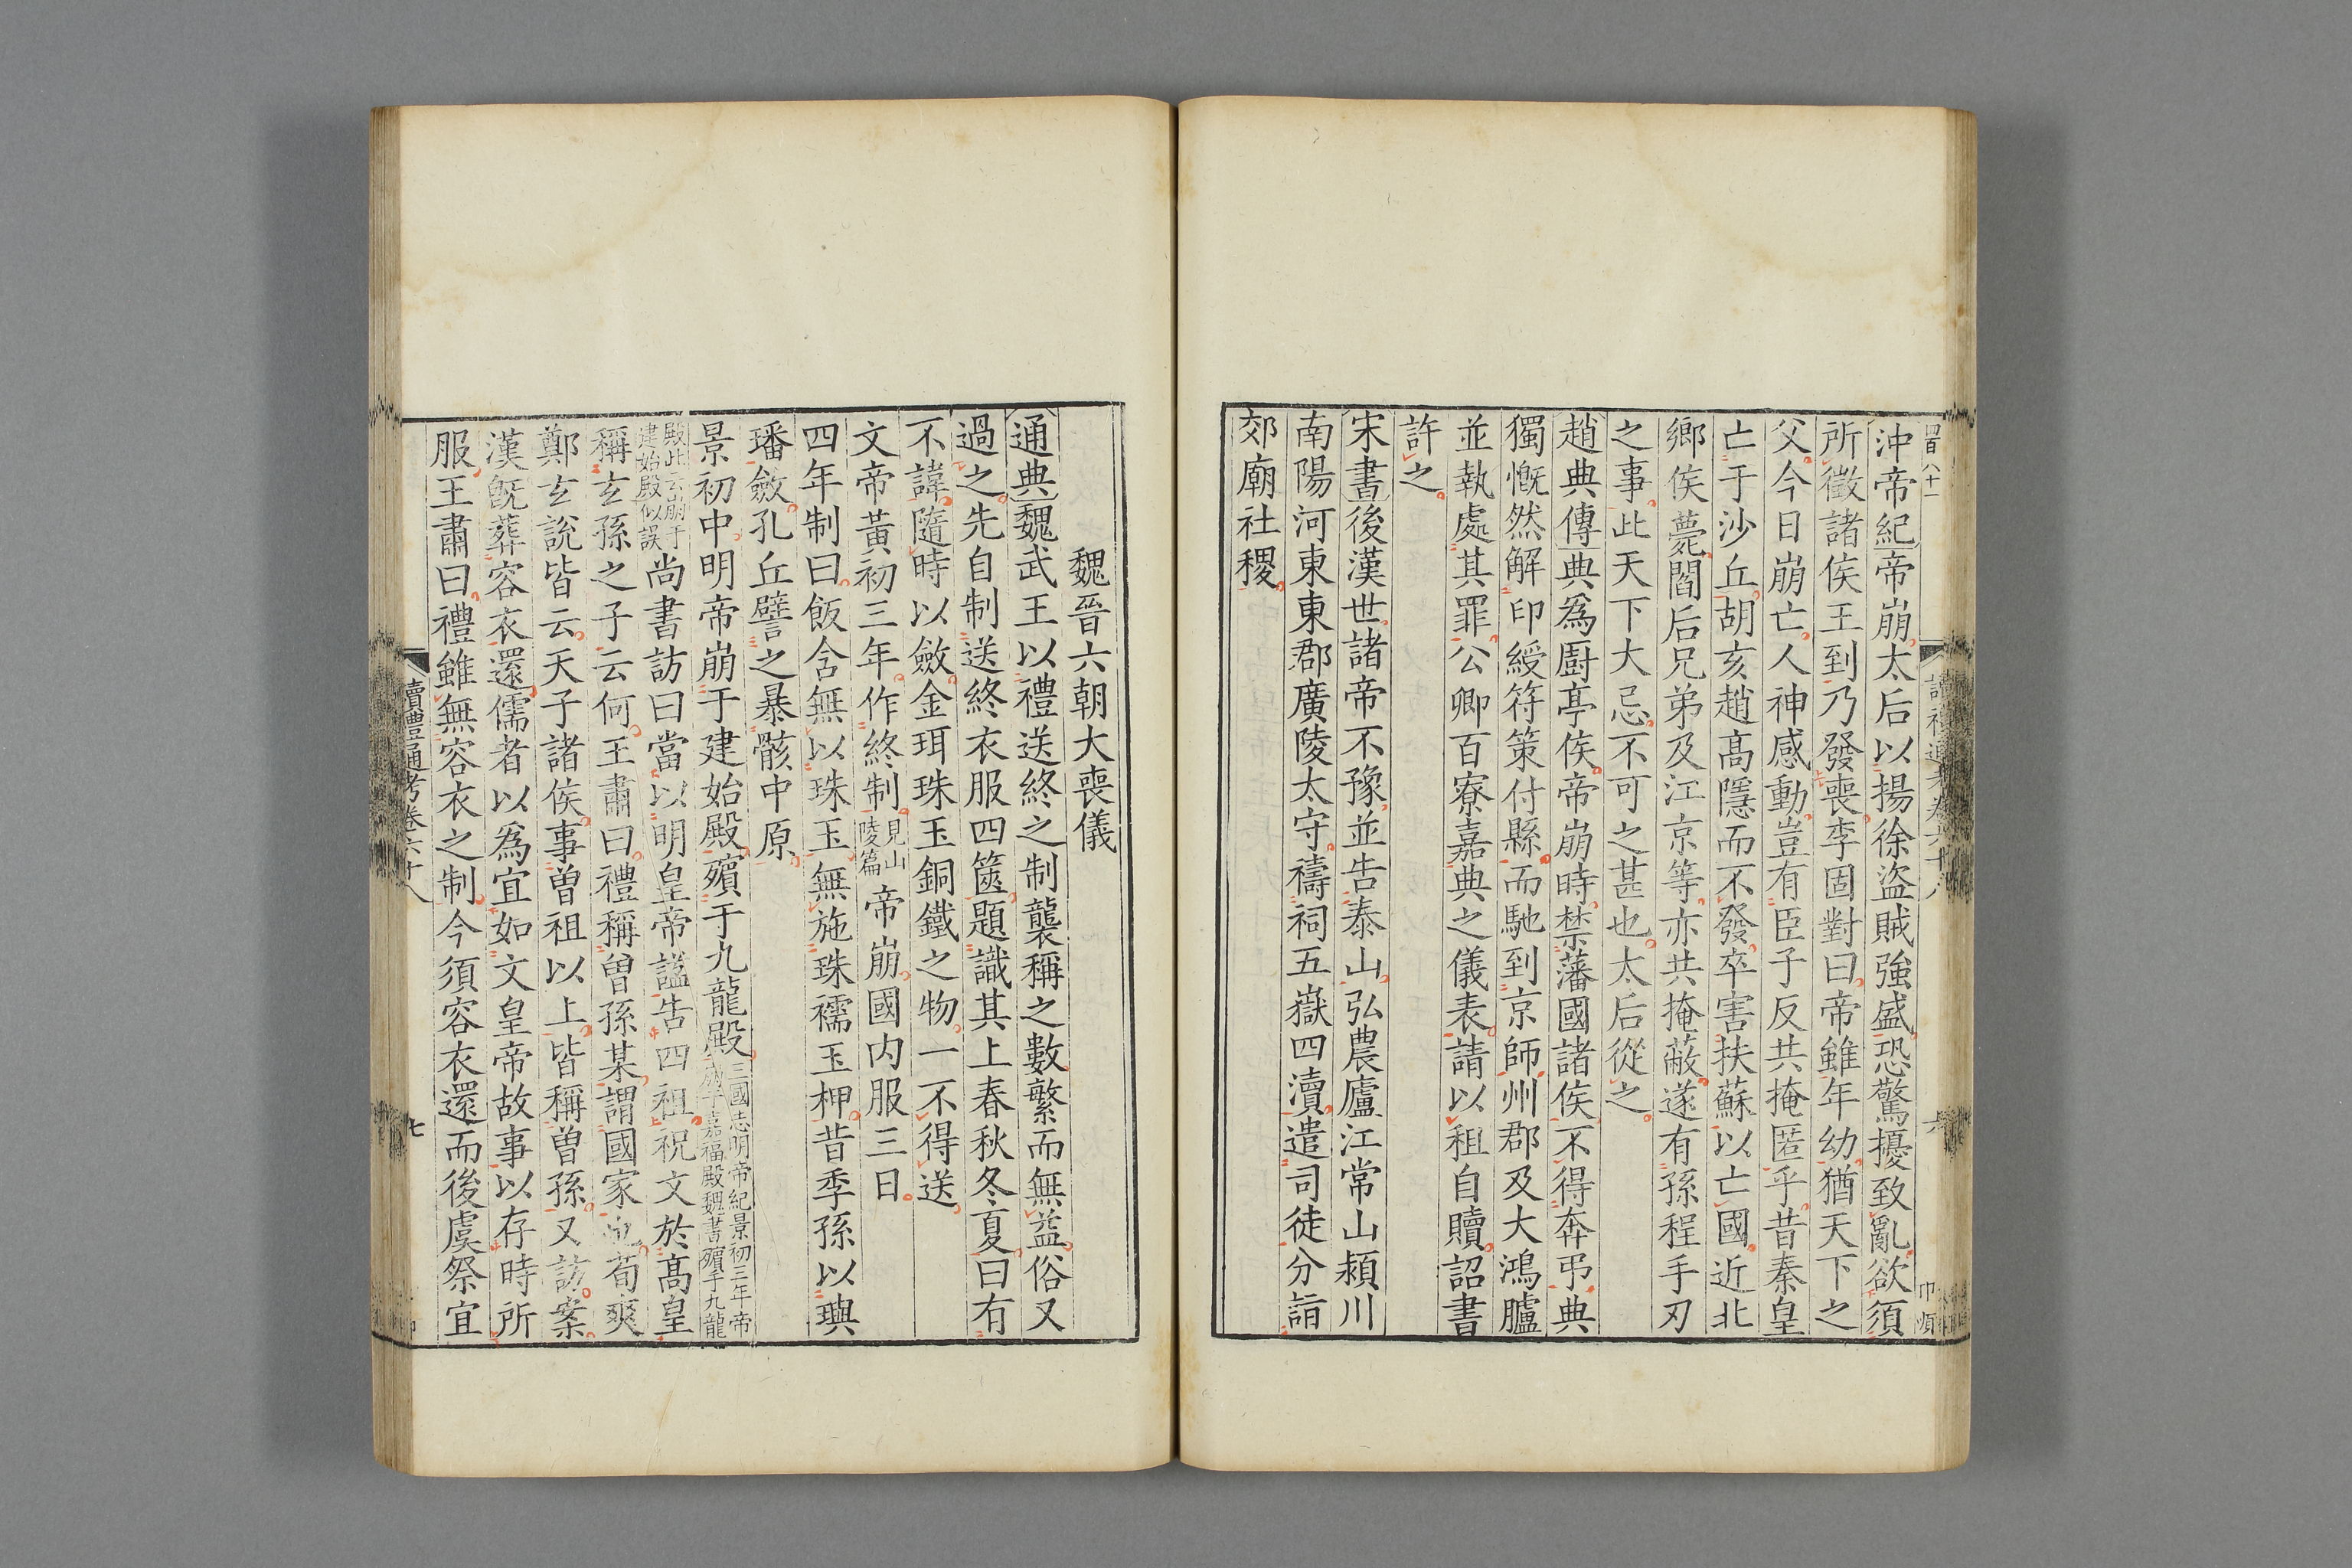 四百八十一
讀禮通考卷六十八
六
沖帝紀帝崩太后以揚徐盜賊強盛恐驚擾致亂欲須
所徵諸侯王到乃發喪李固對曰帝雖年幼猶天下之
父今日崩亡人神感動豈有臣子反共掩匿乎昔秦皇
亡于沙丘胡亥趙高隱而不發卒害扶蘇以亡國近北
鄉侯薨閻后兄弟及江京等亦共掩蔽遂有孫程手刃
之事此天下大忌不可之甚也太后從之
趙典傳典為廚亭侯帝崩時禁藩國諸侯不得奔弔典
獨慨然解印綬符策付縣而馳到京師州郡及大鴻臚
並執處其罪公卿百寮嘉典之儀表請以租自贖詔書
許之
宋書後漢世諸帝不豫並告泰山弘農廬江常山潁川
南陽河東東郡廣陵太守禱祠五嶽四瀆遣司徒分詣
郊廟社稷
魏晉六朝大喪儀
通典魏武王以禮送終之制襲稱之數繁而無益俗又
過之先自制送終衣服四篋題識其上春秋冬夏曰有
不諱隨時以斂金珥珠玉銅鐵之物一不得送
文帝黃初三年作終制見山陵篇帝崩國內服三日
四年制曰飯含無以珠玉無施珠襦玉柙昔季孫以璵
璠斂孔丘譬之暴骸中原
景初中明帝崩于建始殿殯于九龍殿三國志明帝紀景初三年帝崩于嘉福殿魏書殯于九龍
殿此云崩于建始殿似誤尚書訪曰當以明皇帝謚告四祖祝文於高皇
稱玄孫之子云何王肅曰禮稱曾孫某謂國家也荀爽
鄭玄說皆云天子諸侯事曾祖以上皆稱曾孫又訪案
漢既葬容衣還儒者以為宜如文皇帝故事以存時所
服王肅曰禮雖無容衣之制今須容衣還而後虞祭宜
讀禮通考卷六十八
七